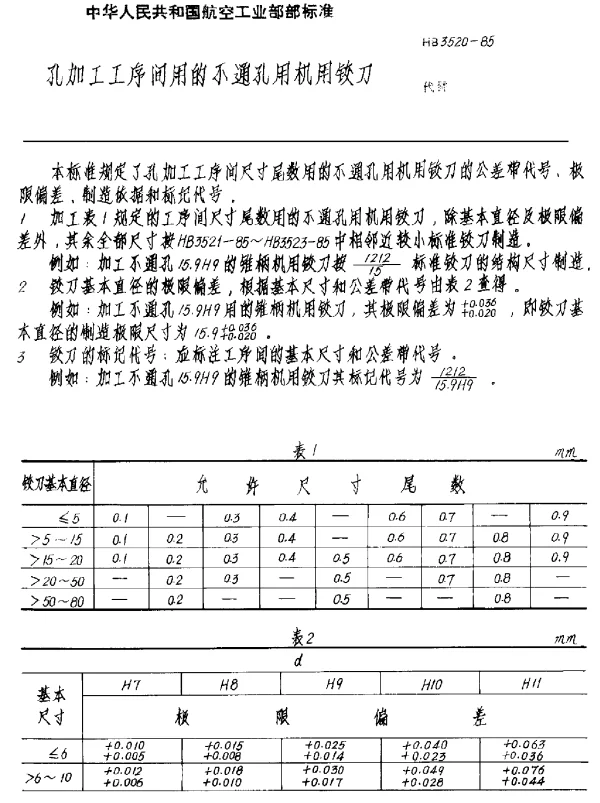 中华人民共和国航空工业部部标准
HB3520-85
孔加工工序间用的不通孔用机用铰刀
代替
本标准规定了孔加工工序间尺寸尾数用的不通孔用机用铰刀的公差带代号、极
限偏差、制造依据和标记代号.
1 加工表1规定的工序间尺寸尾数用的不通孔用机用铰刀,除基本直径及极限偏
差外,其余全部尺寸按HB3521-85~HB3523-85中相邻近较小标准铰刀制造。
例如:加工不通孔15.9H9的锥柄机用铰刀按 1212/15 标准铰刀的结构尺寸制造.
2 铰刀基本直径的极限偏差,根据基本尺寸和公差带代号由表2查得。
例如:加工不通孔15.9H9用的锥柄机用铰刀,其极限偏差为 +0.036 +0.020 ,即铰刀基
本直径的制造极限尺寸为 15.9 +0.036 +0.020 。
3 铰刀的标记代号:应标注工序间的基本尺寸和公差带代号。
例如:加工不通孔15.9H9的锥柄机用铰刀其标记代号为 1212/15.9H9 。
表1 mm
铰刀基本直径 允许尺寸尾数
≤5 0.1 — 0.3 0.4 — 0.6 0.7 — 0.9
>5~15 0.1 0.2 0.3 0.4 — 0.6 0.7 0.8 0.9
>15~20 0.1 0.2 0.3 0.4 0.5 0.6 0.7 0.8 0.9
>20~50 — 0.2 0.3 — 0.5 — 0.7 0.8 —
>50~80 — 0.2 — — 0.5 — — 0.8 —
表2 mm
d
基本尺寸 H7 H8 H9 H10 H11
极限偏差
≤6 +0.010 +0.005 +0.015 +0.008 +0.025 +0.014 +0.040 +0.023 +0.063 +0.036
>6~10 +0.012 +0.006 +0.018 +0.010 +0.030 +0.017 +0.049 +0.028 +0.076 +0.044